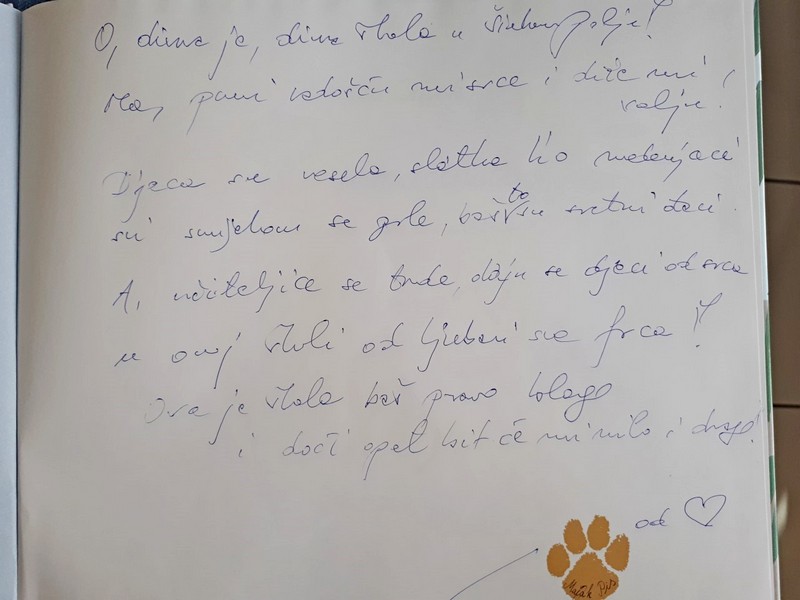 O, divna je, divna škola u Šišlavom polju!
Ma, puni radošću mi srce i diže mi
volju!
Djeca su vesela, slatka k'o medenjaci
svi smjehom se grle, baš to su sretni đaci.
A, učiteljice se trude, daju se djeci od srca
u ovoj školi od ljubavi sve frca!
Ova je škola baš pravo blago
i doći opet bit će mi milo i drago!
od ♡